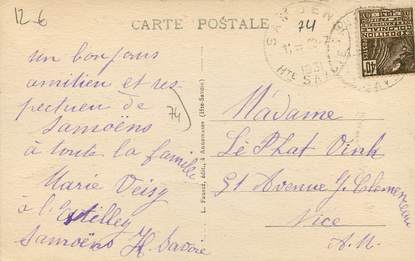 12 €
CARTE POSTALE
74
SAMOENS
1931
HTE SAVOIE
un bonjour
amitieu et res
pectueu de
Samoëns
74
à toute la famille
Marie Veisy
à l'
Samoëns H Savoie
L. Fauraz, édit., à Annemasse (Hte-Savoie)
Madame
Lê Phat Vinh
51 Avenue G. Clemenceau
Nice
A.M.